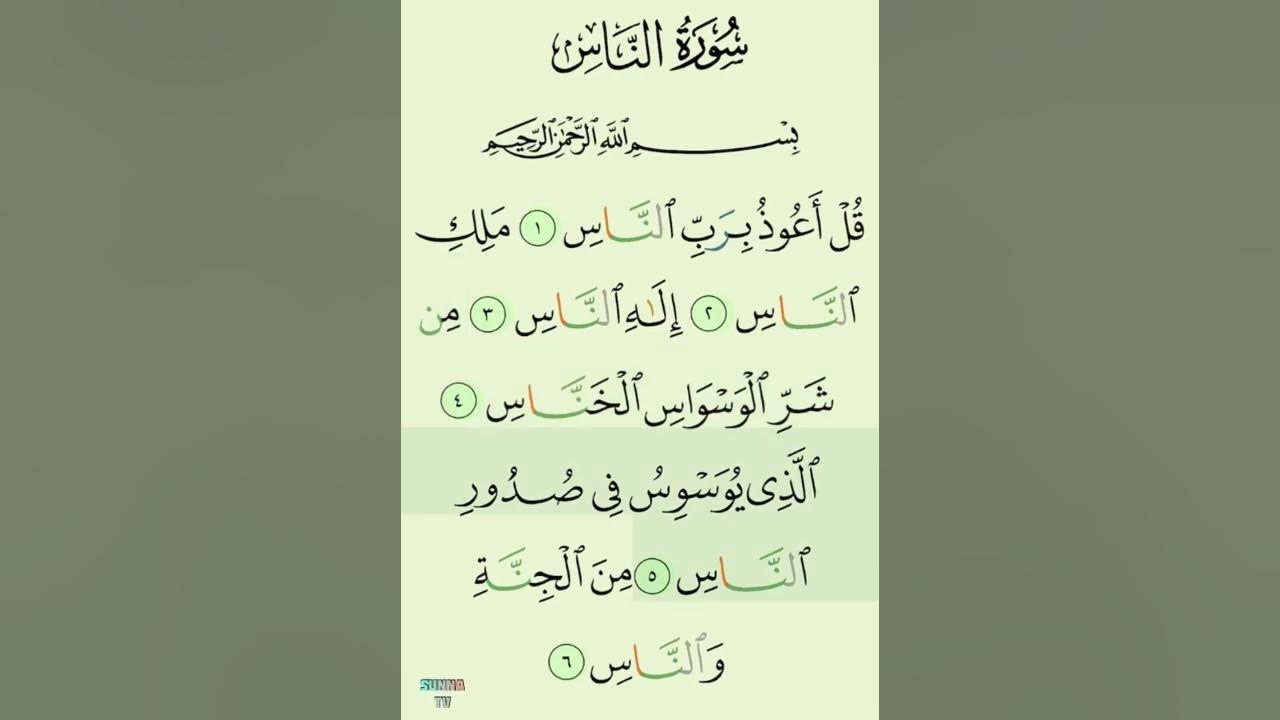 سُورَةُ النَّاسِ
بِسْمِ ٱللَّهِ ٱلرَّحْمَٰنِ ٱلرَّحِيمِ
قُلْ أَعُوذُ بِرَبِّ ٱلنَّاسِ ١ مَلِكِ
ٱلنَّاسِ ٢ إِلَٰهِ ٱلنَّاسِ ٣ مِن
شَرِّ ٱلْوَسْوَاسِ ٱلْخَنَّاسِ ٤
ٱلَّذِى يُوَسْوِسُ فِى صُدُورِ
ٱلنَّاسِ ٥ مِنَ ٱلْجِنَّةِ
وَٱلنَّاسِ ٦
SUNNA
TV